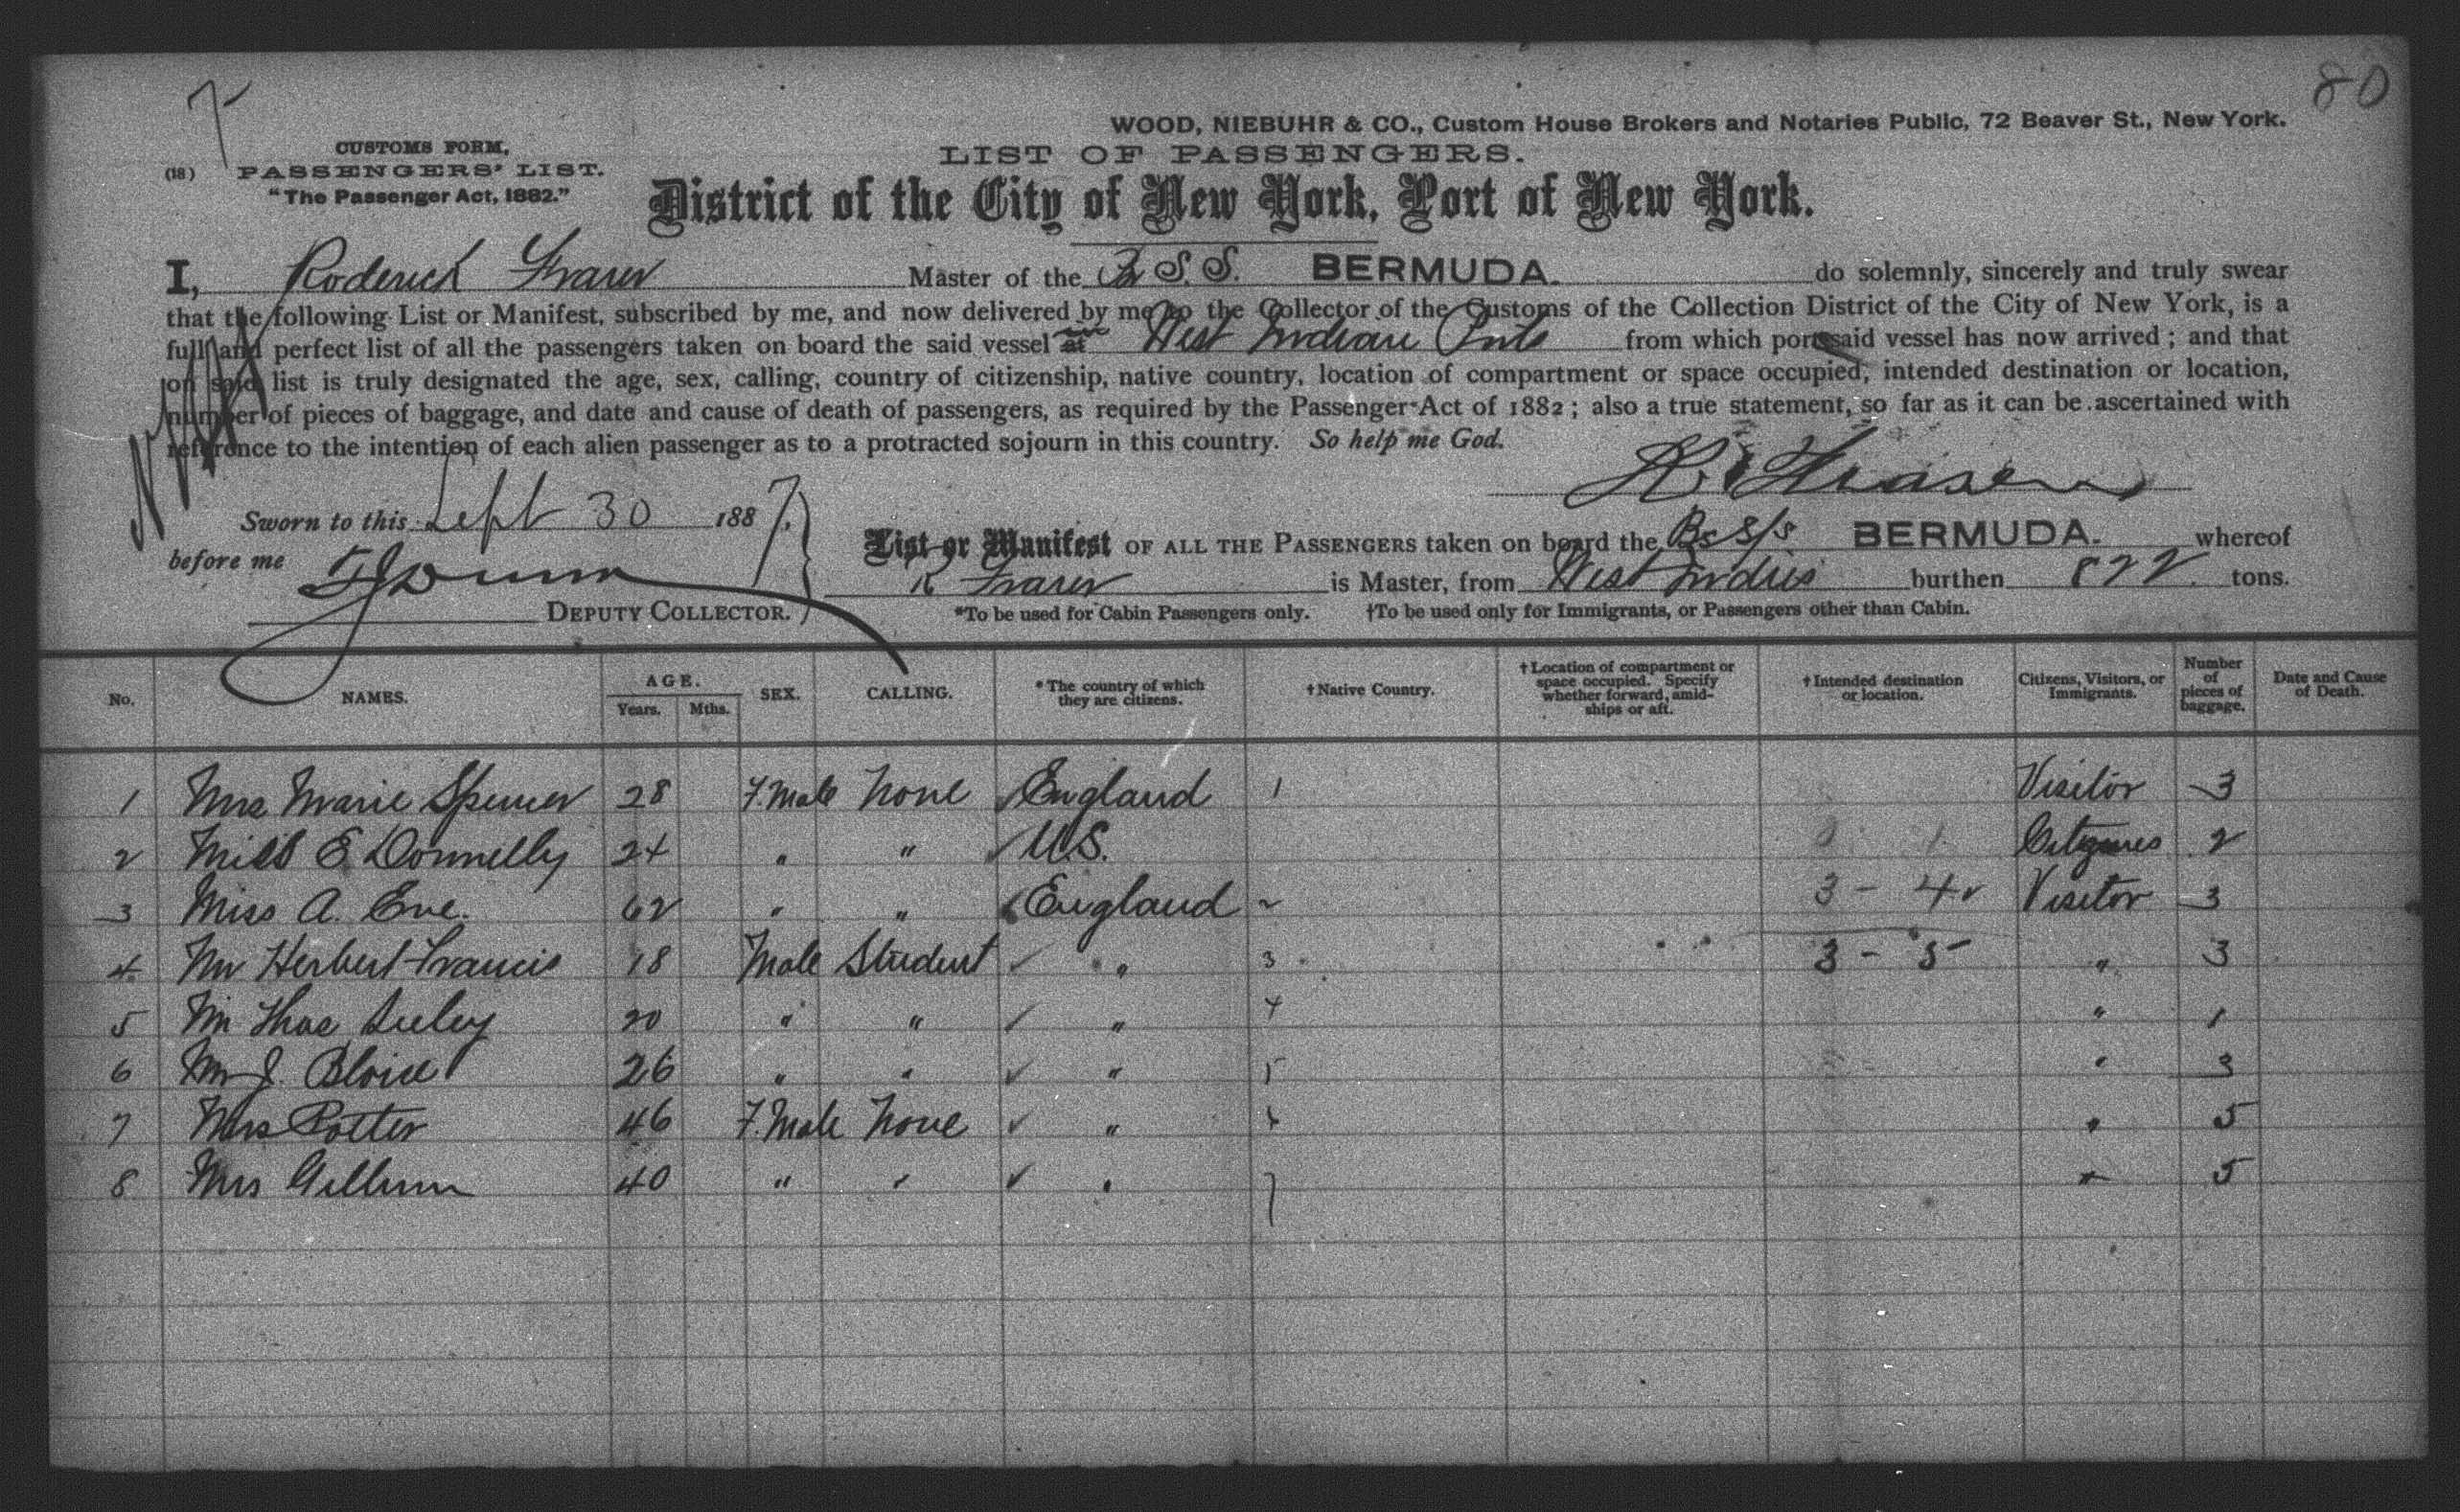 80
7
WOOD, NIEBUHR & CO., Custom House Brokers and Notaries Public, 72 Beaver St., New York.
CUSTOMS FORM,
LIST OF PASSENGERS.
(18) PASSENGERS' LIST.
"The Passenger Act, 1882."
District of the City of New York, Port of New York.
I, Roderick Fraser Master of the S.S. BERMUDA. do solemnly, sincerely and truly swear
that the following List or Manifest, subscribed by me, and now delivered by me to the Collector of the Customs of the Collection District of the City of New York, is a
full and perfect list of all the passengers taken on board the said vessel at West Indian Ports from which port said vessel has now arrived; and that
on said list is truly designated the age, sex, calling, country of citizenship, native country, location of compartment or space occupied, intended destination or location,
number of pieces of baggage, and date and cause of death of passengers, as required by the Passenger Act of 1882; also a true statement, so far as it can be ascertained with
reference to the intention of each alien passenger as to a protracted sojourn in this country. So help me God.
R Fraser
Sworn to this Sept 30 1887.
before me
DEPUTY COLLECTOR.
List or Manifest OF ALL THE PASSENGERS taken on board the Bs S/s BERMUDA. whereof
R Fraser is Master, from West Indies burthen 822 tons.
*To be used for Cabin Passengers only. †To be used only for Immigrants, or Passengers other than Cabin.
No. NAMES. AGE. Years. Mths. SEX. CALLING. *The country of which they are citizens. †Native Country. †Location of compartment or space occupied. Specify whether forward, amidships or aft. †Intended destination or location. Citizens, Visitors, or Immigrants. Number of pieces of baggage. Date and Cause of Death.
1 Mrs Marie Spencer 28 F.Male None England 1 Visitor 3
2 Miss E Donnelly 24 " " U.S. 2
3 Miss A. Eve. 62 " " England 2 3 - 4 Visitor 3
4 Mr Herbert Francis 18 Male Student " 3 3 - 5 " 3
5 Mr Thos Seeley 20 " " " 4 " 1
6 Mr J. 26 " " " 5 " 3
7 Mrs Potter 46 F.Male None " " 5
8 Mrs 40 " " " 7 " 5